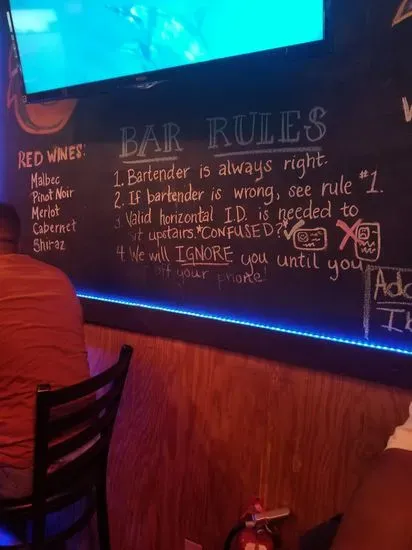 BAR RULES
1. Bartender is always right.
2. If bartender is wrong, see rule #1.
3 Valid horizontal I.D. is needed to
sit upstairs.*CONFUSED?*
4 We will IGNORE you until you
off your phone!
RED WINES:
Malbec
Pinot Noir
Merlot
Cabernet
Shiraz